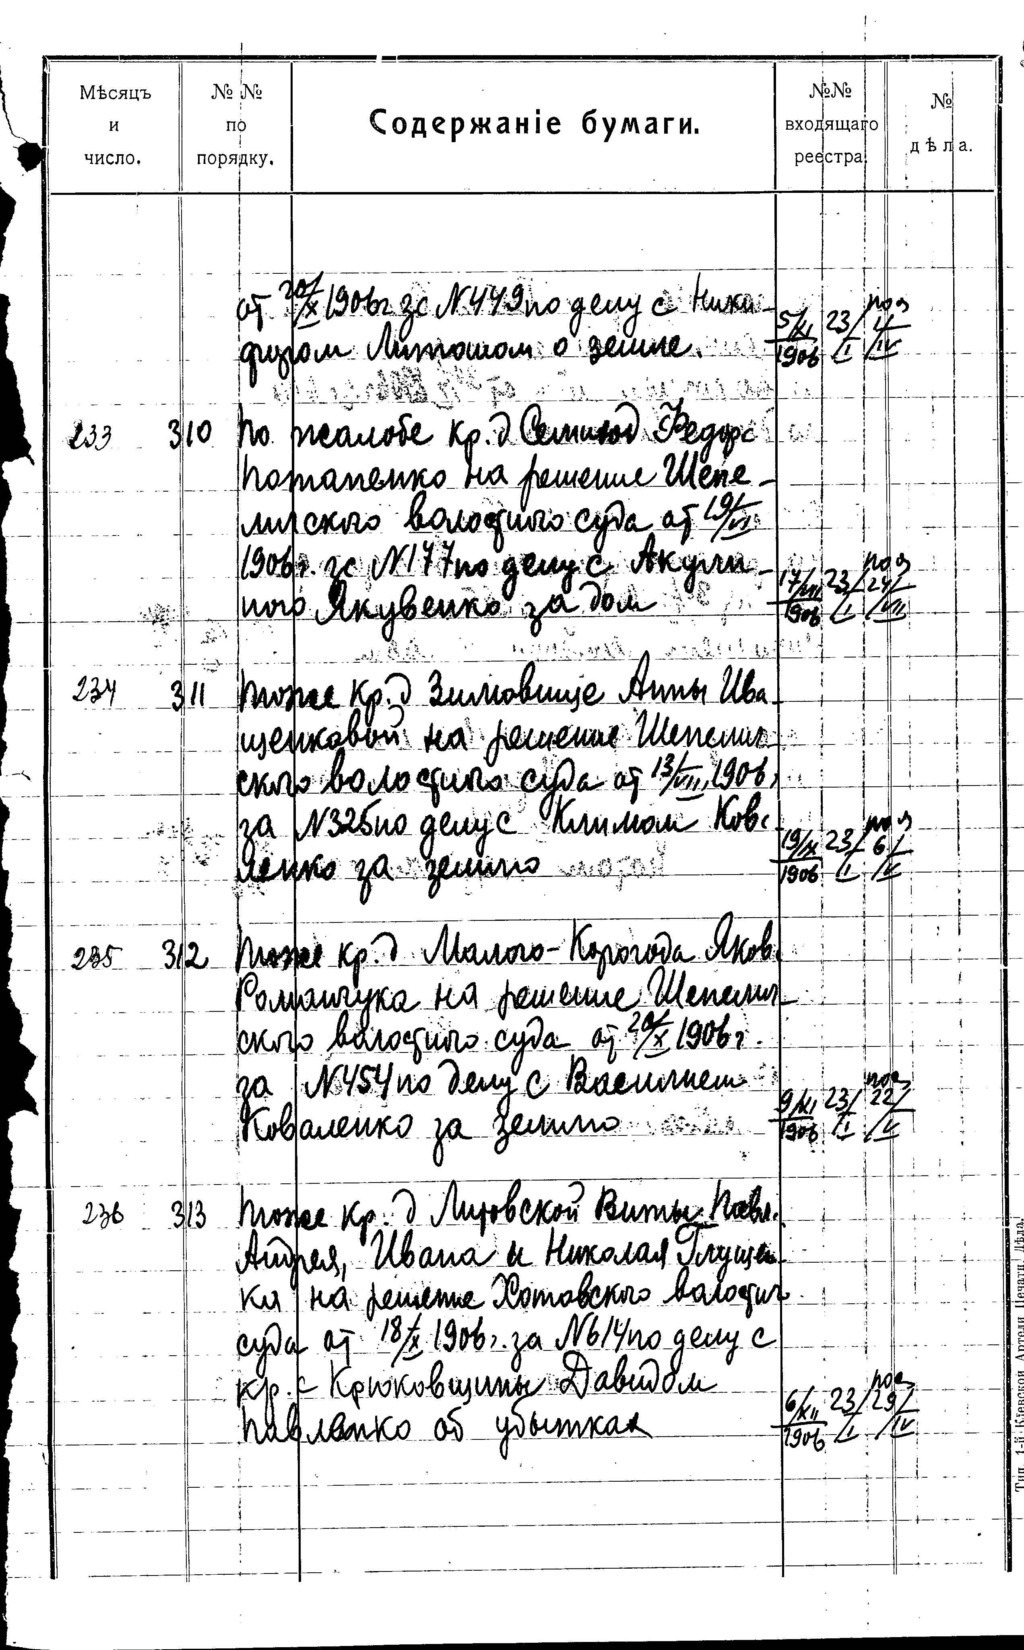 Мѣсяцъ и число.
№ № по порядку.
Содержаніе бумаги.
№№ входящаго реестра.
№ дѣла.
от 20/X 1906г зс N449 по делу с Ники-
фором Литошом о земле.
5/XI 1906 23/I 4/IV
233 310 По жалобе кр. д Семиход Федора
Потапенко на решение Шепе-
личского волостного суда от 19/VI
1906г. зс N177 по делу с Акули-
ного Якувенко за дом
17/VII 1906 23/I 24/VII
234 311 Тоже кр. д Зимовище Анны Ива-
щенковой на решение Шепелич-
ского волостного суда от 13/VII 1906г
за N325 по делу с Климом Ков-
ленко за землю
19/IX 1906 23/I 6/IV
235 312 Тоже кр. д Малого-Корогода Якова
Романчука на решение Шепелич-
ского волостного суда от 20/X 1906г.
за N454 по делу с Василием
Коваленко за землю
9/XI 1906 23/I 22/V
236 313 Тоже кр. д Лутовской Виты Павла,
Андрея, Ивана и Николая Глущен-
ка на решение Хотовского волостног
суда от 18/X 1906г. за N614 по делу с
кр. с Крюковщины Давидом
Павленко об убытках
6/XII 1906 23/I 29/IV
Тип. 1-й Кіевской Артели Печатн. Дѣла.